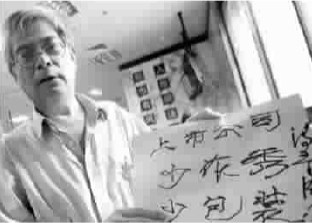 上市公司
少作秀
少包装